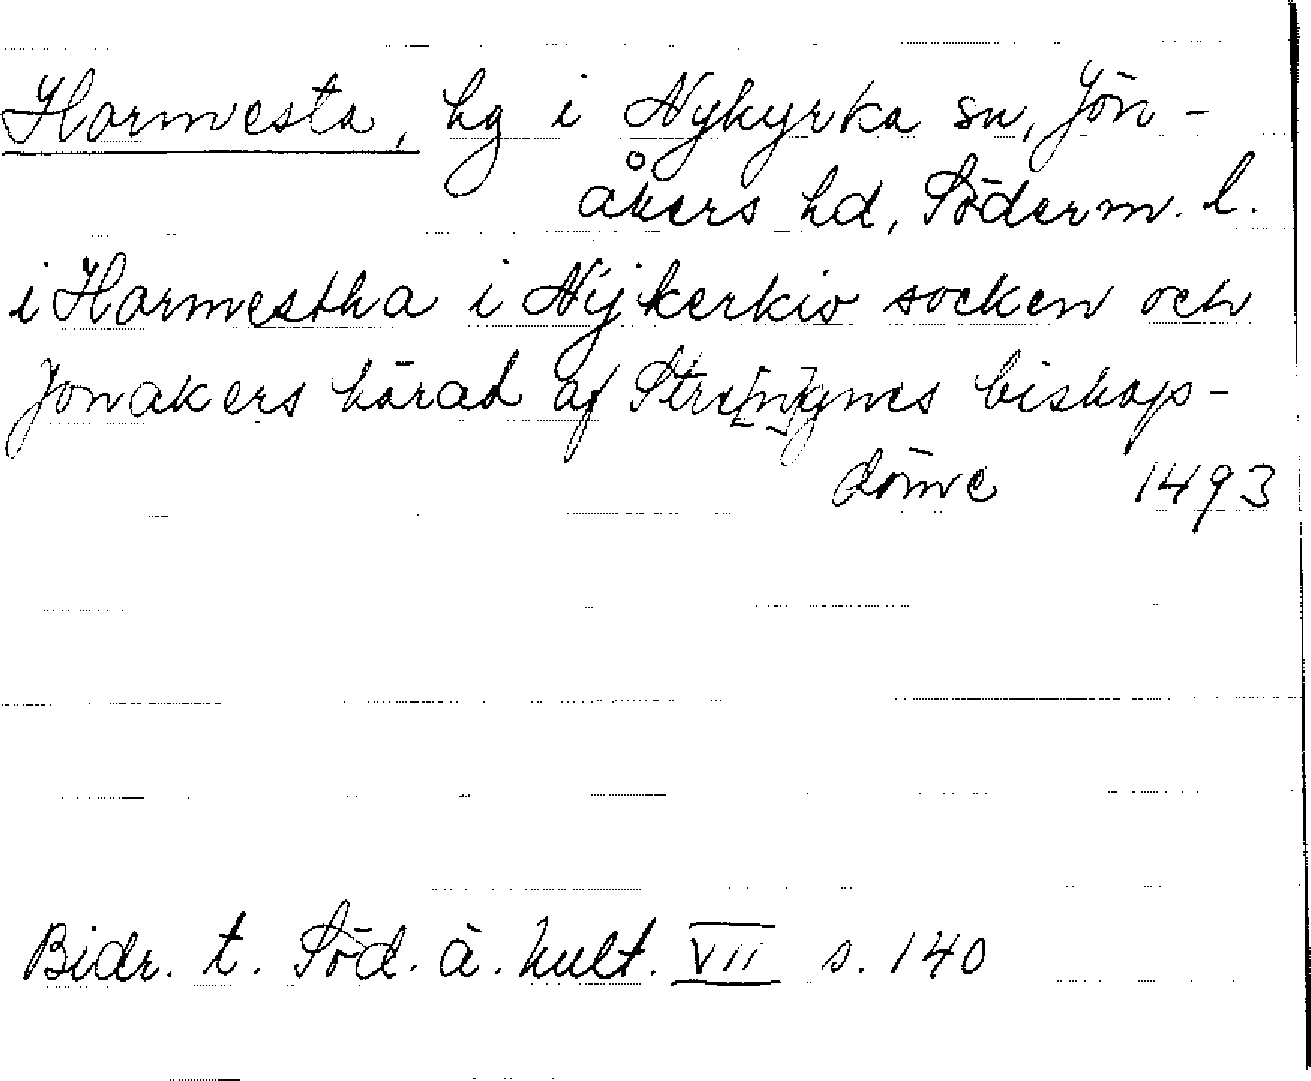 Harmesta, hg i Nykyrka sn, Jön-
åkers hd, Söderm. l.
i Harmestha i Nijkerkio socken och
Jonakers härad af Stre[n]gnes biskops-
döme 1493
Bidr. t. Söd. ä. kult. VII s. 140